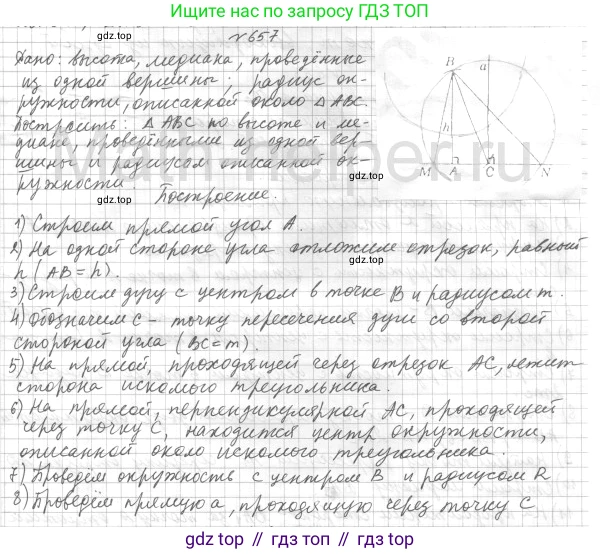 Ищите нас по запросу ГДЗ ТОП
№657
Дано: высота, медиана, проведённые
из одной вершины; радиус ок-
ружности, описанной около △ ABC.
Построить: △ ABC по высоте и ме-
диане, проведёнными из одной вер-
шины и радиусом описанной ок-
ружности.
Построение.
B
a
h
M
A
C
N
1) Строим прямой угол A.
2) На одной стороне угла отложим отрезок, равный
h (AB = h).
3) Строим дугу с центром в точке B и радиусом m.
4) Обозначим C – точку пересечения дуги со второй
стороной угла (BC = m).
5) На прямой, проходящей через отрезок AC, лежит
сторона искомого треугольника.
6) На прямой, перпендикулярной AC, проходящей
через точку C, находится центр окружности,
описанной около искомого треугольника.
7) Проведём окружность с центром B и радиусом R
8) Проведём прямую a, проходящую через точку C
gdz.top // гдз.топ // gdz.top